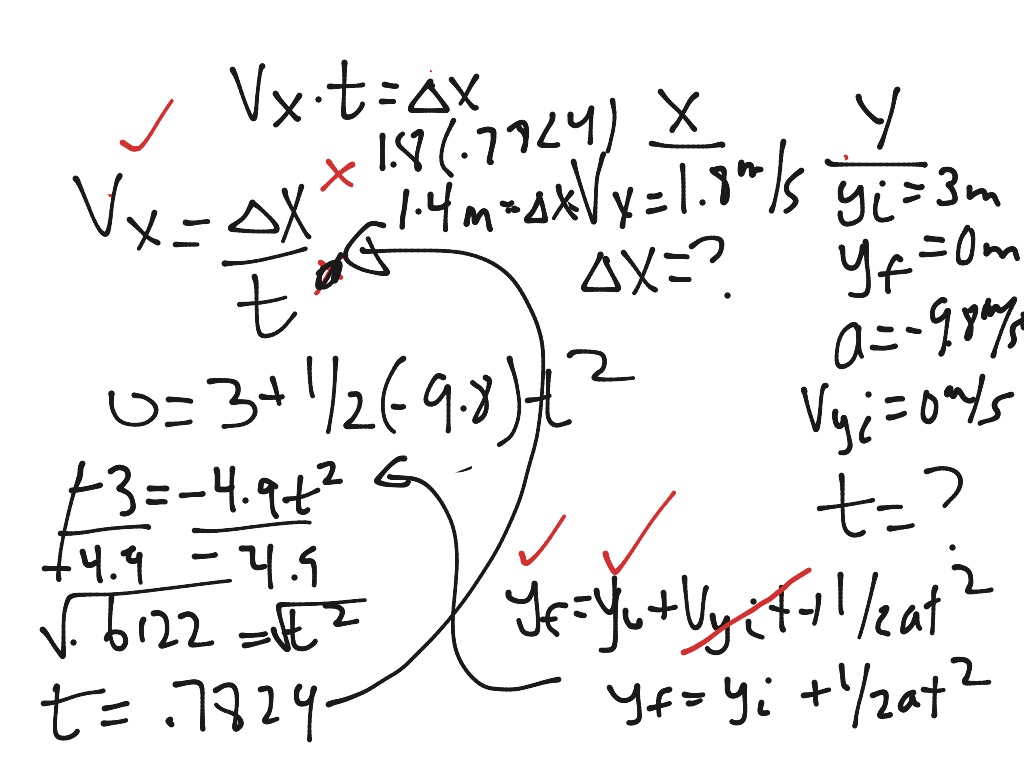 Vx · t = Δx
1.8(.7824)
1.4m = Δx
Vx = Δx / t
x
Vx = 1.8 m/s
Δx = ?
y
yi = 3m
yf = 0m
a = -9.8 m/s
Vyi = 0 m/s
t = ?
0 = 3 + 1/2(-9.8)t²
-3 = -4.9t²
4.9 = 4.9
√.6122 = √t²
t = .7824
yf = yi + Vyit + 1/2at²
yf = yi + 1/2at²